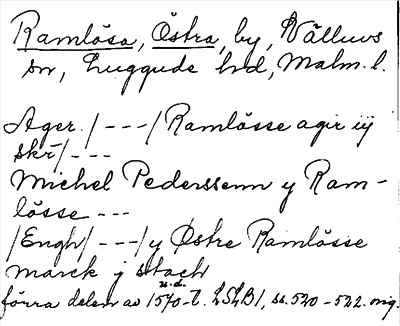 Ramlösa, Östra, by, Välluvs
sn, Luggude hd, Malm. l.
Ager. / - - - / Ramlösse agir iij
skr / - - -
Michel Pederssenn y Ram-
lösse - - -
/Engh/ - - - / y Østre Ramlösse
marck j stach
u. d.
förra delen av 1570-t. LSLB1, ss. 520 - 522. orig.